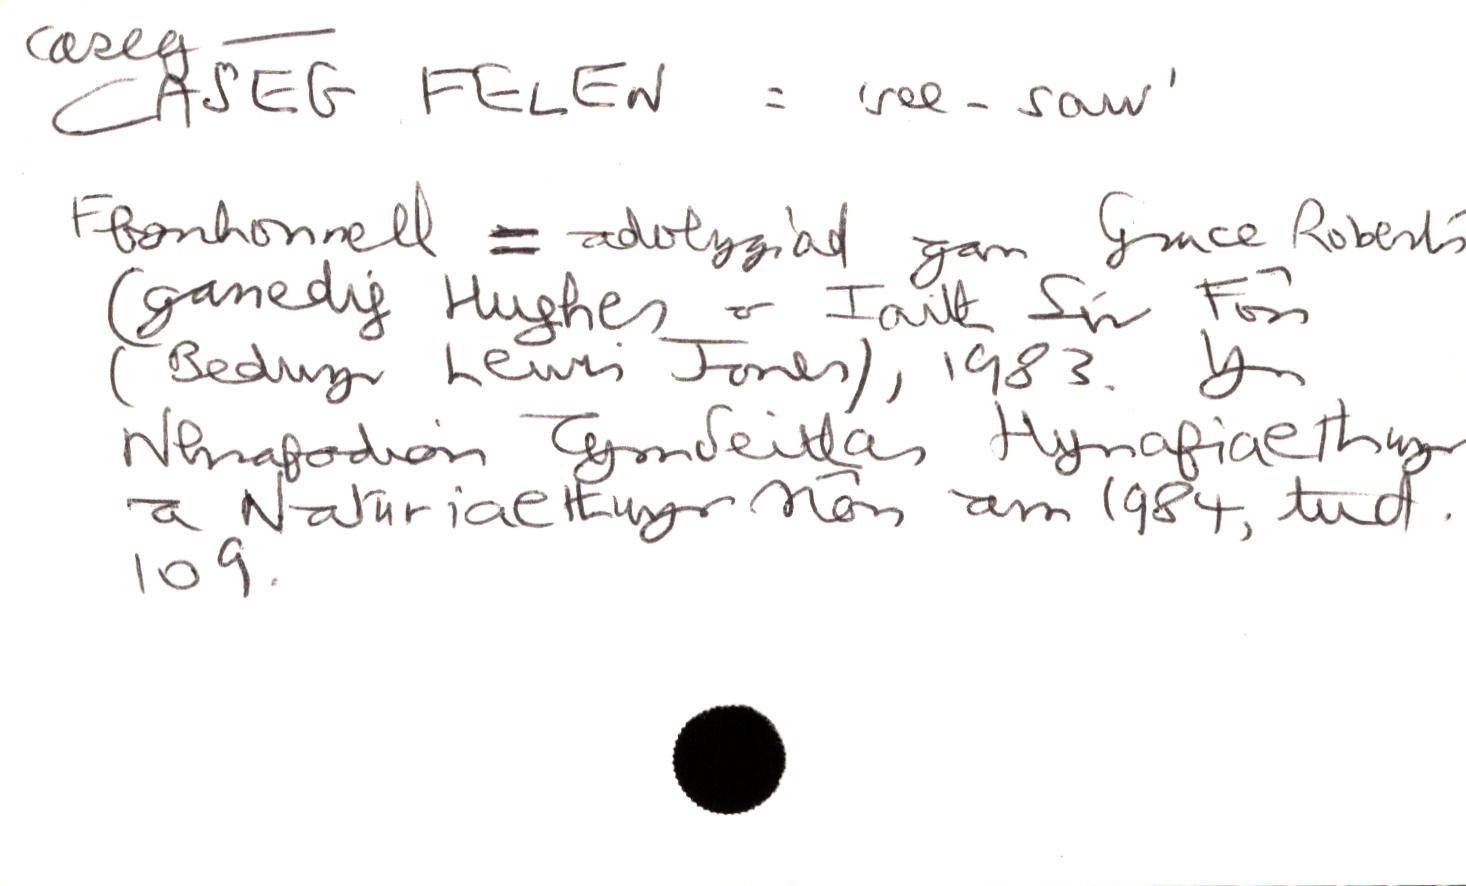 caseg —
CASEG FELEN = 'see-saw'
Ffonhonnell = adolygiad gan Grace Roberts
(ganedig Hughes o Iaith Sir Fôn
(Bedwyr Lewis Jones), 1983. Yn
Nhrafodion Cymdeithas Hynafiaethwyr
a Naturiaethwyr Môn am 1984, tud.
109.